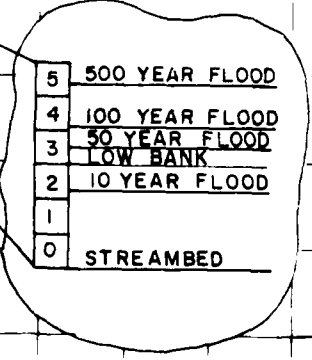 5 500 YEAR FLOOD
4 100 YEAR FLOOD
50 YEAR FLOOD
3 LOW BANK
2 10 YEAR FLOOD
1
0 STREAMBED